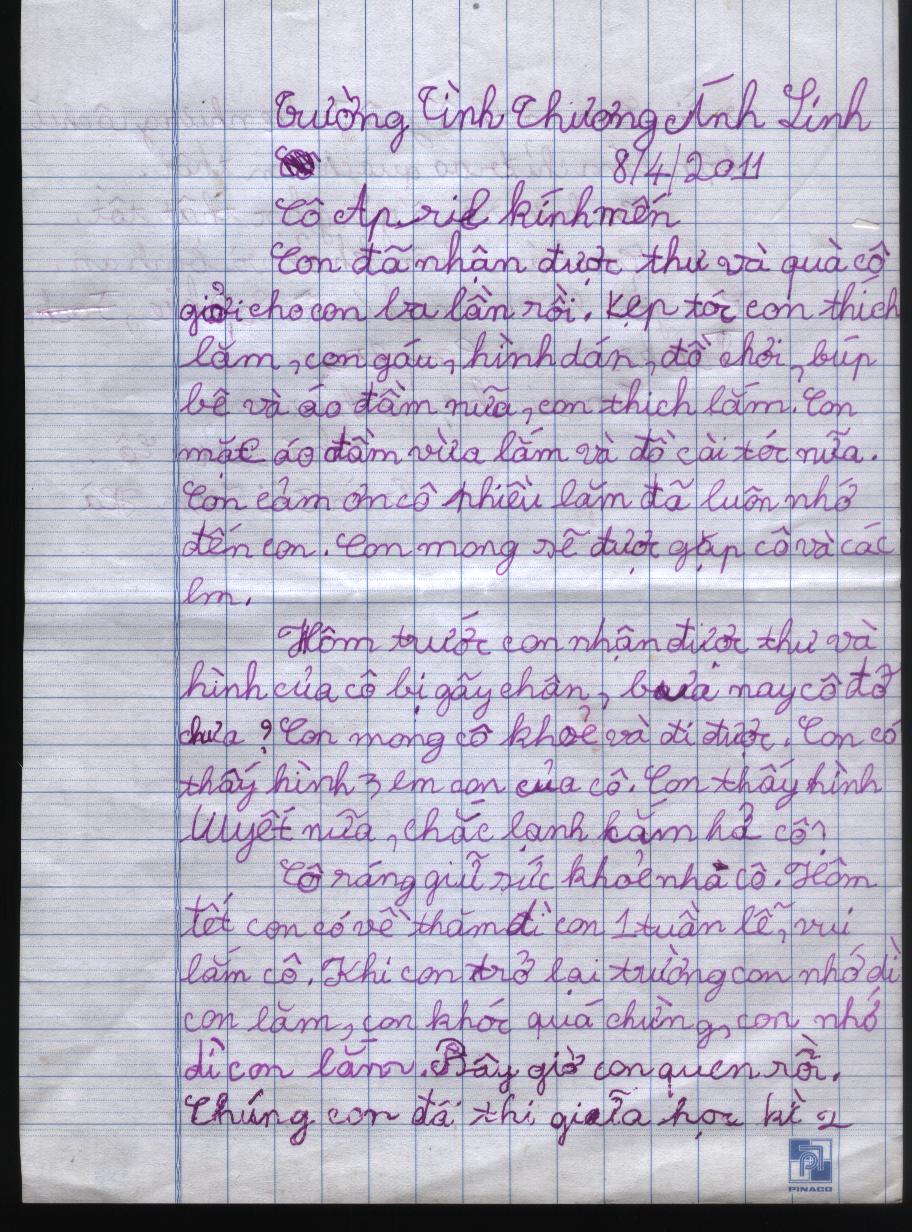 Trường Tình Thương Ánh Linh
8/4/2011
Cô April kính mến
Con đã nhận được thư và quà cô
giởi cho con ba lần rồi. Kẹp tóc con thích
lắm, con gấu, hình dán, đồ chơi, búp
bê và áo đầm nữa, con thích lắm. Con
mặc áo đầm vừa lắm và đồ cài tóc nữa.
Con cảm ơn cô nhiều lắm đã luôn nhớ
đến con. Con mong sẽ được gặp cô và các
em.
Hôm trước con nhận được thư và
hình của cô bị gãy chân, bữa nay cô đỡ
chưa? Con mong cô khoẻ và đi được. Con có
thấy hình 3 em con của cô. Con thấy hình
tuyết nữa, chắc lạnh lắm hả cô?
Cô ráng giữ sức khoẻ nha cô. Hôm
tết con có về thăm dì con 1 tuần lễ, vui
lắm cô. Khi con trở lại trường con nhớ dì
con lắm, con khóc quá chừng, con nhớ
dì con lắm. Bây giờ con quen rồi.
Chúng con đã thi giữa học kì 2
PINACO